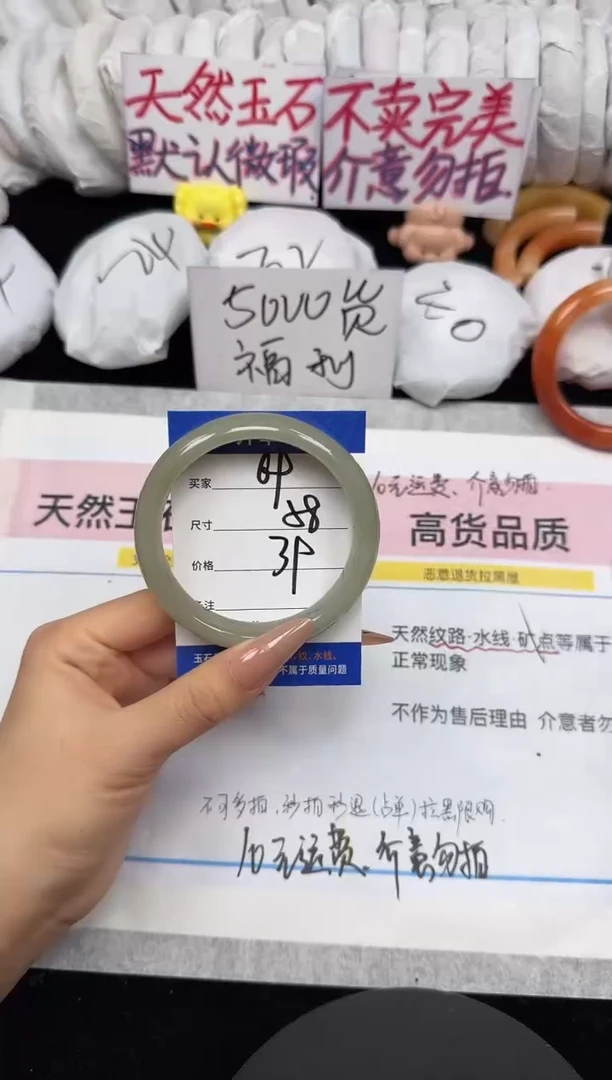 天然玉石
默认微瑕
不卖完美
介意勿拍
24
5000货
福利
20
买家
尺寸 58
价格
10元运费、介意勿拍
天然玉
高货品质
恶意退货拉黑屋
天然纹路·水线·矿点等属于
正常现象
不作为售后理由 介意者勿
玉石
纹、水线、
不属于质量问题
不可多拍，秒拍秒退(占单)拉黑限购
10元运费、介意勿拍